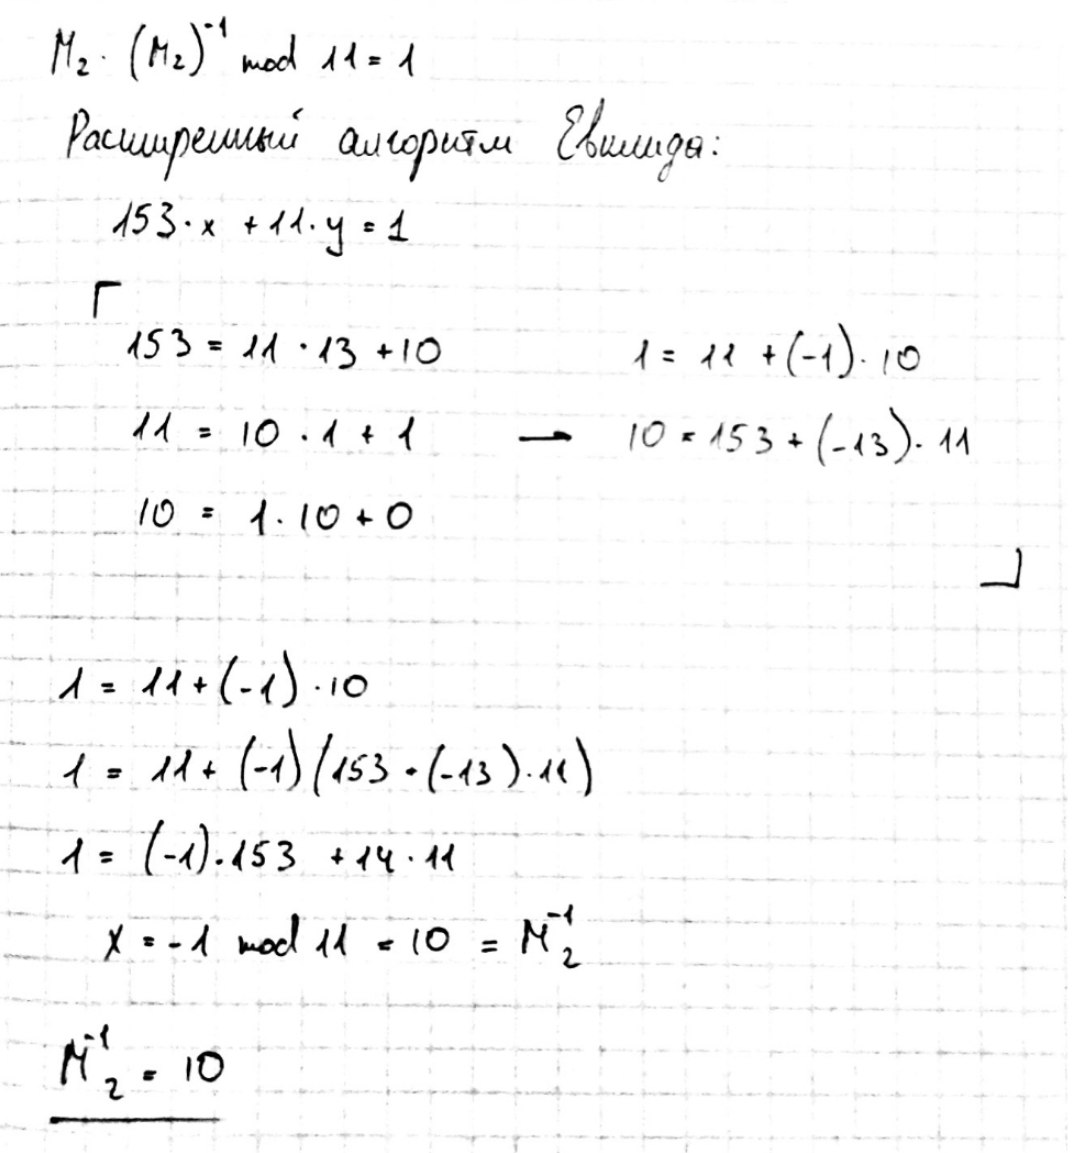 M₂ · (M₂)⁻¹ mod 11 = 1
Расширенный алгоритм Евклида:
153 · x + 11 · y = 1
153 = 11 · 13 + 10
1 = 11 + (-1) · 10
11 = 10 · 1 + 1 — 10 = 153 + (-13) · 11
10 = 1 · 10 + 0
1 = 11 + (-1) · 10
1 = 11 + (-1) (153 + (-13) · 11)
1 = (-1) · 153 + 14 · 11
x = -1 mod 11 = 10 = M₂⁻¹
M₂⁻¹ = 10